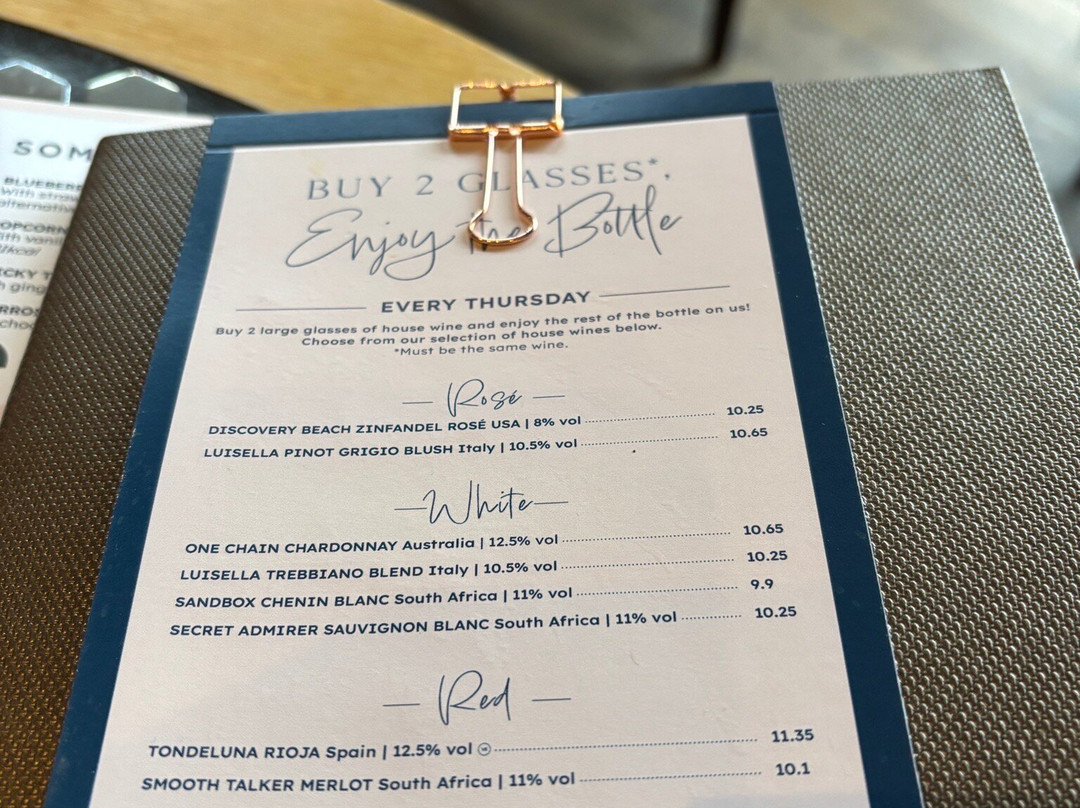 SOM
BLUEBERR
With straw
alternativ
OPCORN
ith vani
CKY T
h ging
RROS
choc
BUY 2 GLASSES*,
Enjoy the Bottle
EVERY THURSDAY
Buy 2 large glasses of house wine and enjoy the rest of the bottle on us!
Choose from our selection of house wines below.
*Must be the same wine.
Rosé
DISCOVERY BEACH ZINFANDEL ROSÉ USA | 8% vol 10.25
LUISELLA PINOT GRIGIO BLUSH Italy | 10.5% vol 10.65
White
ONE CHAIN CHARDONNAY Australia | 12.5% vol 10.65
LUISELLA TREBBIANO BLEND Italy | 10.5% vol 10.25
SANDBOX CHENIN BLANC South Africa | 11% vol 9.9
SECRET ADMIRER SAUVIGNON BLANC South Africa | 11% vol 10.25
Red
TONDELUNA RIOJA Spain | 12.5% vol 11.35
SMOOTH TALKER MERLOT South Africa | 11% vol 10.1